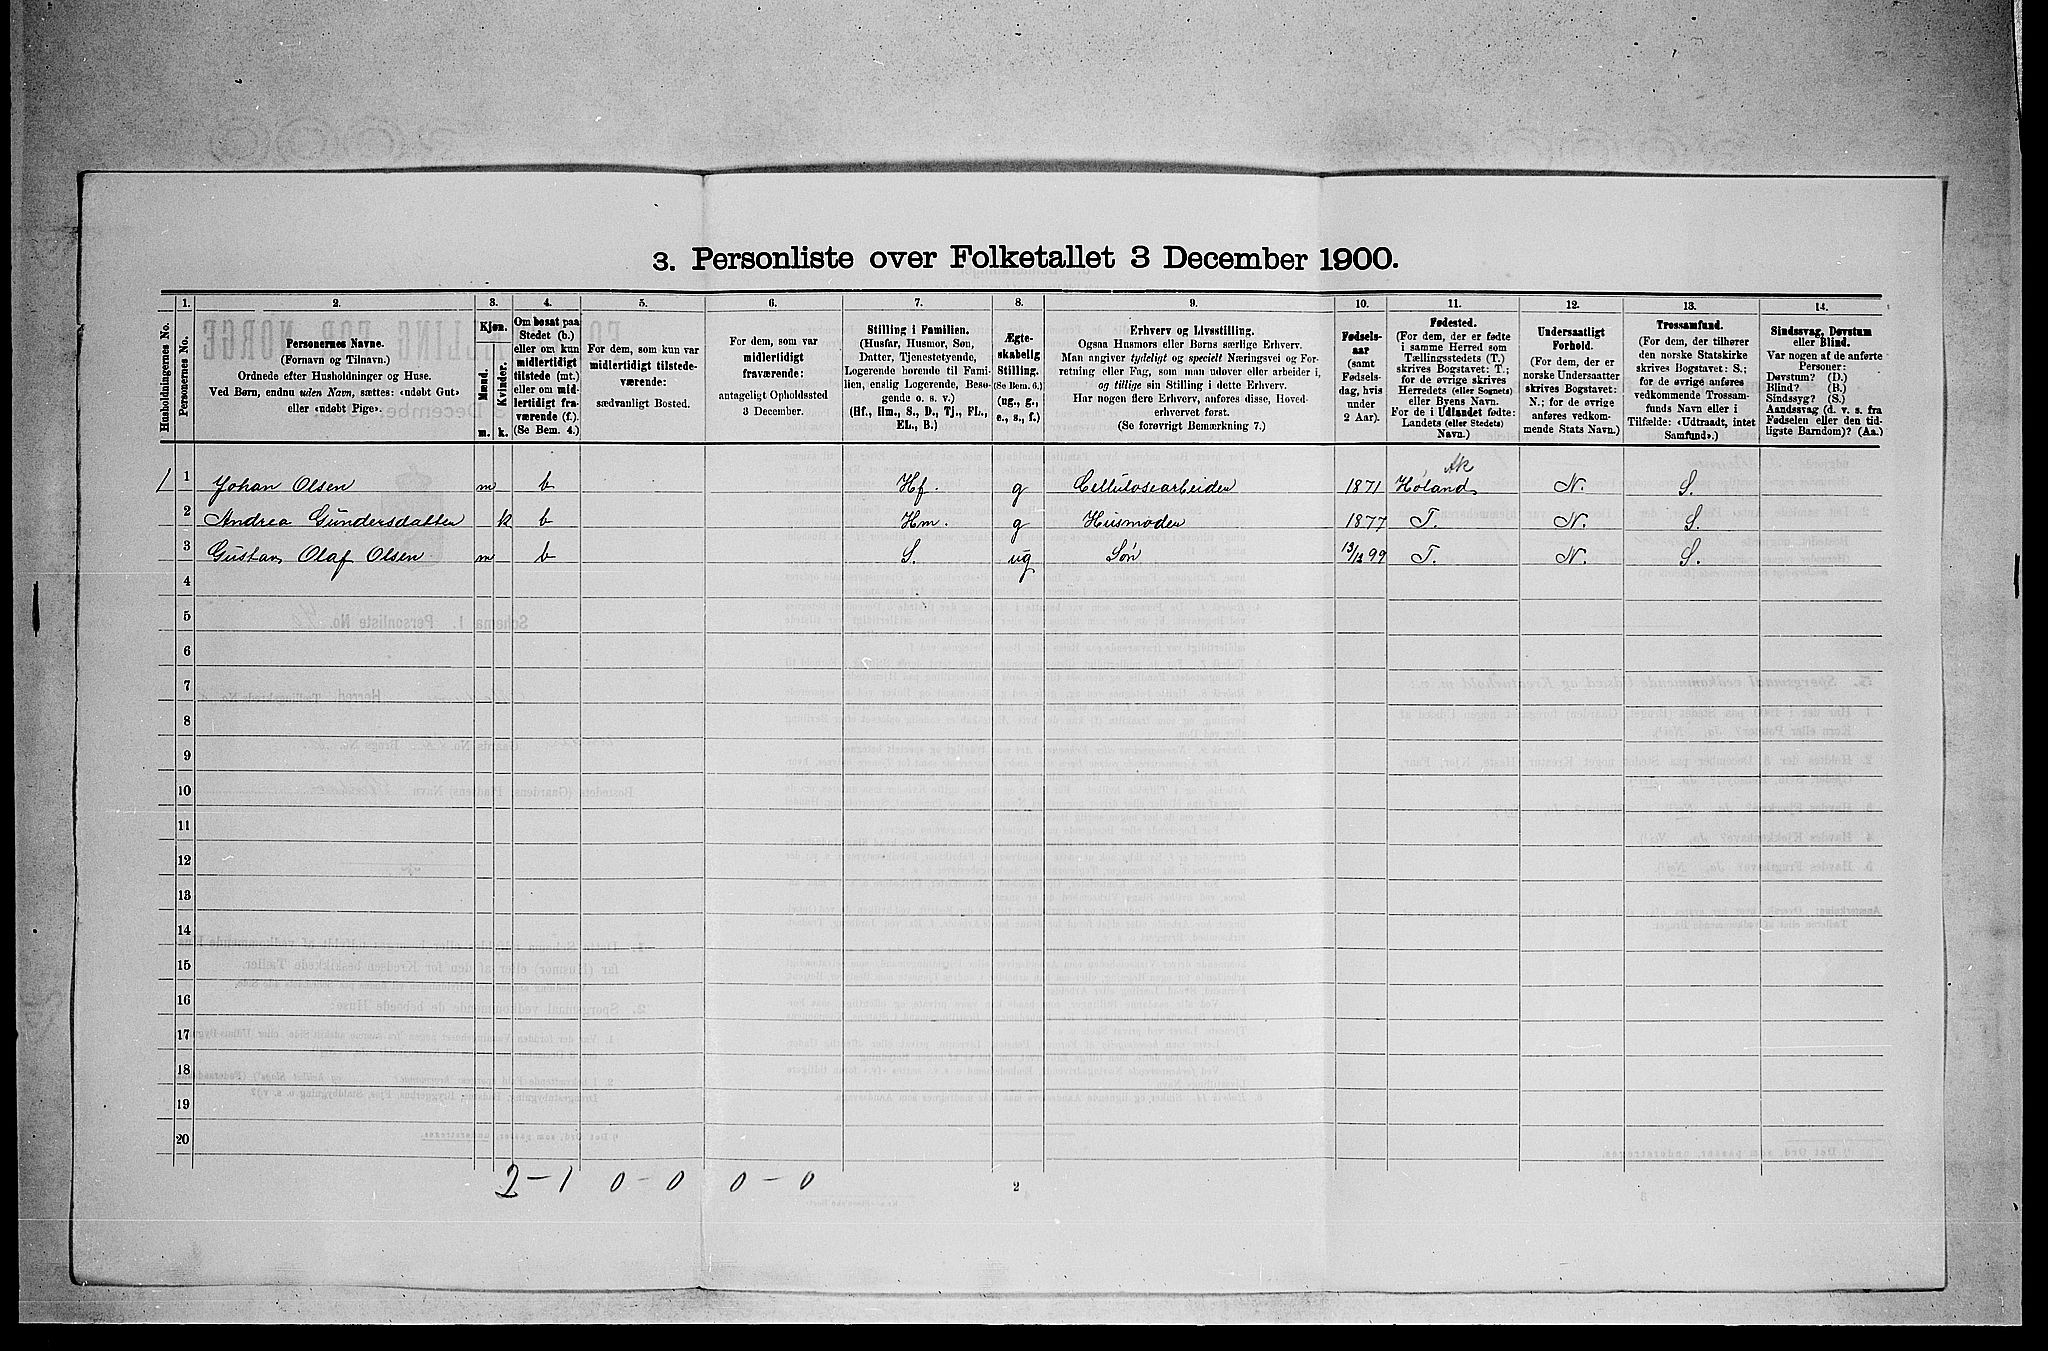 3. Personliste over Folketallet 3 December 1900.
Husholdningernes No.
1.
Personernes No.
2.
Personernes Navne.
(Fornavn og Tilnavn.)
Ordnede efter Husholdninger og Huse.
Ved Børn, endnu uden Navn, sættes: «udøbt Gut»
eller «udøbt Pige».
3.
Kjøn.
Mænd.
Kvinder.
m.
k.
4.
Om bosat paa
Stedet (b.)
eller om kun
midlertidigt
tilstede (mt.)
eller om mid-
lertidigt fra-
værende (f.).
(Se Bem. 4.)
5.
For dem, som kun var
midlertidigt tilstede-
værende:
sædvanligt Bosted.
6.
For dem, som var
midlertidigt
fraværende:
antageligt Opholdssted
3 December.
7.
Stilling i Familien.
(Husfar, Husmor, Søn,
Datter, Tjenestetyende,
Logerende hørende til Fami-
lien, enslig Logerende, Besø-
gende o. s. v.)
(Hf., Hm., S., D., Tj., FL.,
EL., B.)
8.
Ægte-
skabelig
Stilling.
(Se Bem. 6.)
(ug., g.,
e., s., f.)
9.
Erhverv og Livsstilling.
Ogsaa Husmors eller Børns særlige Erhverv.
Man angiver tydeligt og specielt Næringsvei og For-
retning eller Fag, som man udøver eller arbeider i,
og tillige sin Stilling i dette Erhverv.
Har nogen flere Erhverv, anføres disse, Hoved-
erhvervet først.
(Se forøvrigt Bemærkning 7.)
10.
Fødsels-
aar
(samt
Fødsels-
dag, hvis
under
2 Aar).
11.
Fødested.
(For dem, der er fødte
i samme Herred som
Tællingsstedets (T.)
skrives Bogstavet: T.;
for de øvrige skrives
Herredets (eller Sognets)
eller Byens Navn.
For de i Udlandet fødte:
Landets (eller Stedets)
Navn.)
12.
Undersaatligt
Forhold.
(For dem, der er
norske Undersaatter
skrives Bogstavet:
N.; for de øvrige
anføres vedkom-
mende Stats Navn.)
13.
Trossamfund.
(For dem, der tilhører
den norske Statskirke
skrives Bogstavet: S.;
for de øvrige anføres
vedkommende Trossam-
funds Navn eller i
Tilfælde: «Udtraadt, intet
Samfund».)
14.
Sindssvag, Døvstum
eller Blind.
Var nogen af de anførte
Personer:
Døvstum? (D.)
Blind? (B.)
Sindssyg? (S.)
Aandssvag (d. v. s. fra
Fødselen eller den tid-
ligste Barndom)? (Aa.)
1 1 Johan Olsen m b Hf. g Celluloséarbeider 1871 Høland Ak N. S.
2 Andrea Gundersdatter k b Hm. g Husmoder 1877 T. N. S.
3 Gustav Olaf Olsen m b S. ug Søn 13/12 99 T. N. S.
4
5
6
7
8
9
10
11
12
13
14
15
16
17
18
19
20
2 – 1 0 – 0 0 – 0
2